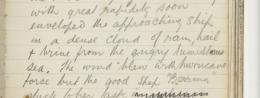 with great rapidity soon
enveloped the approaching ship
in a dense cloud of rain, hail
& brine from the angry
sea. The wind blew with hurricane
force but the good ship "Boma"
stuck to her task